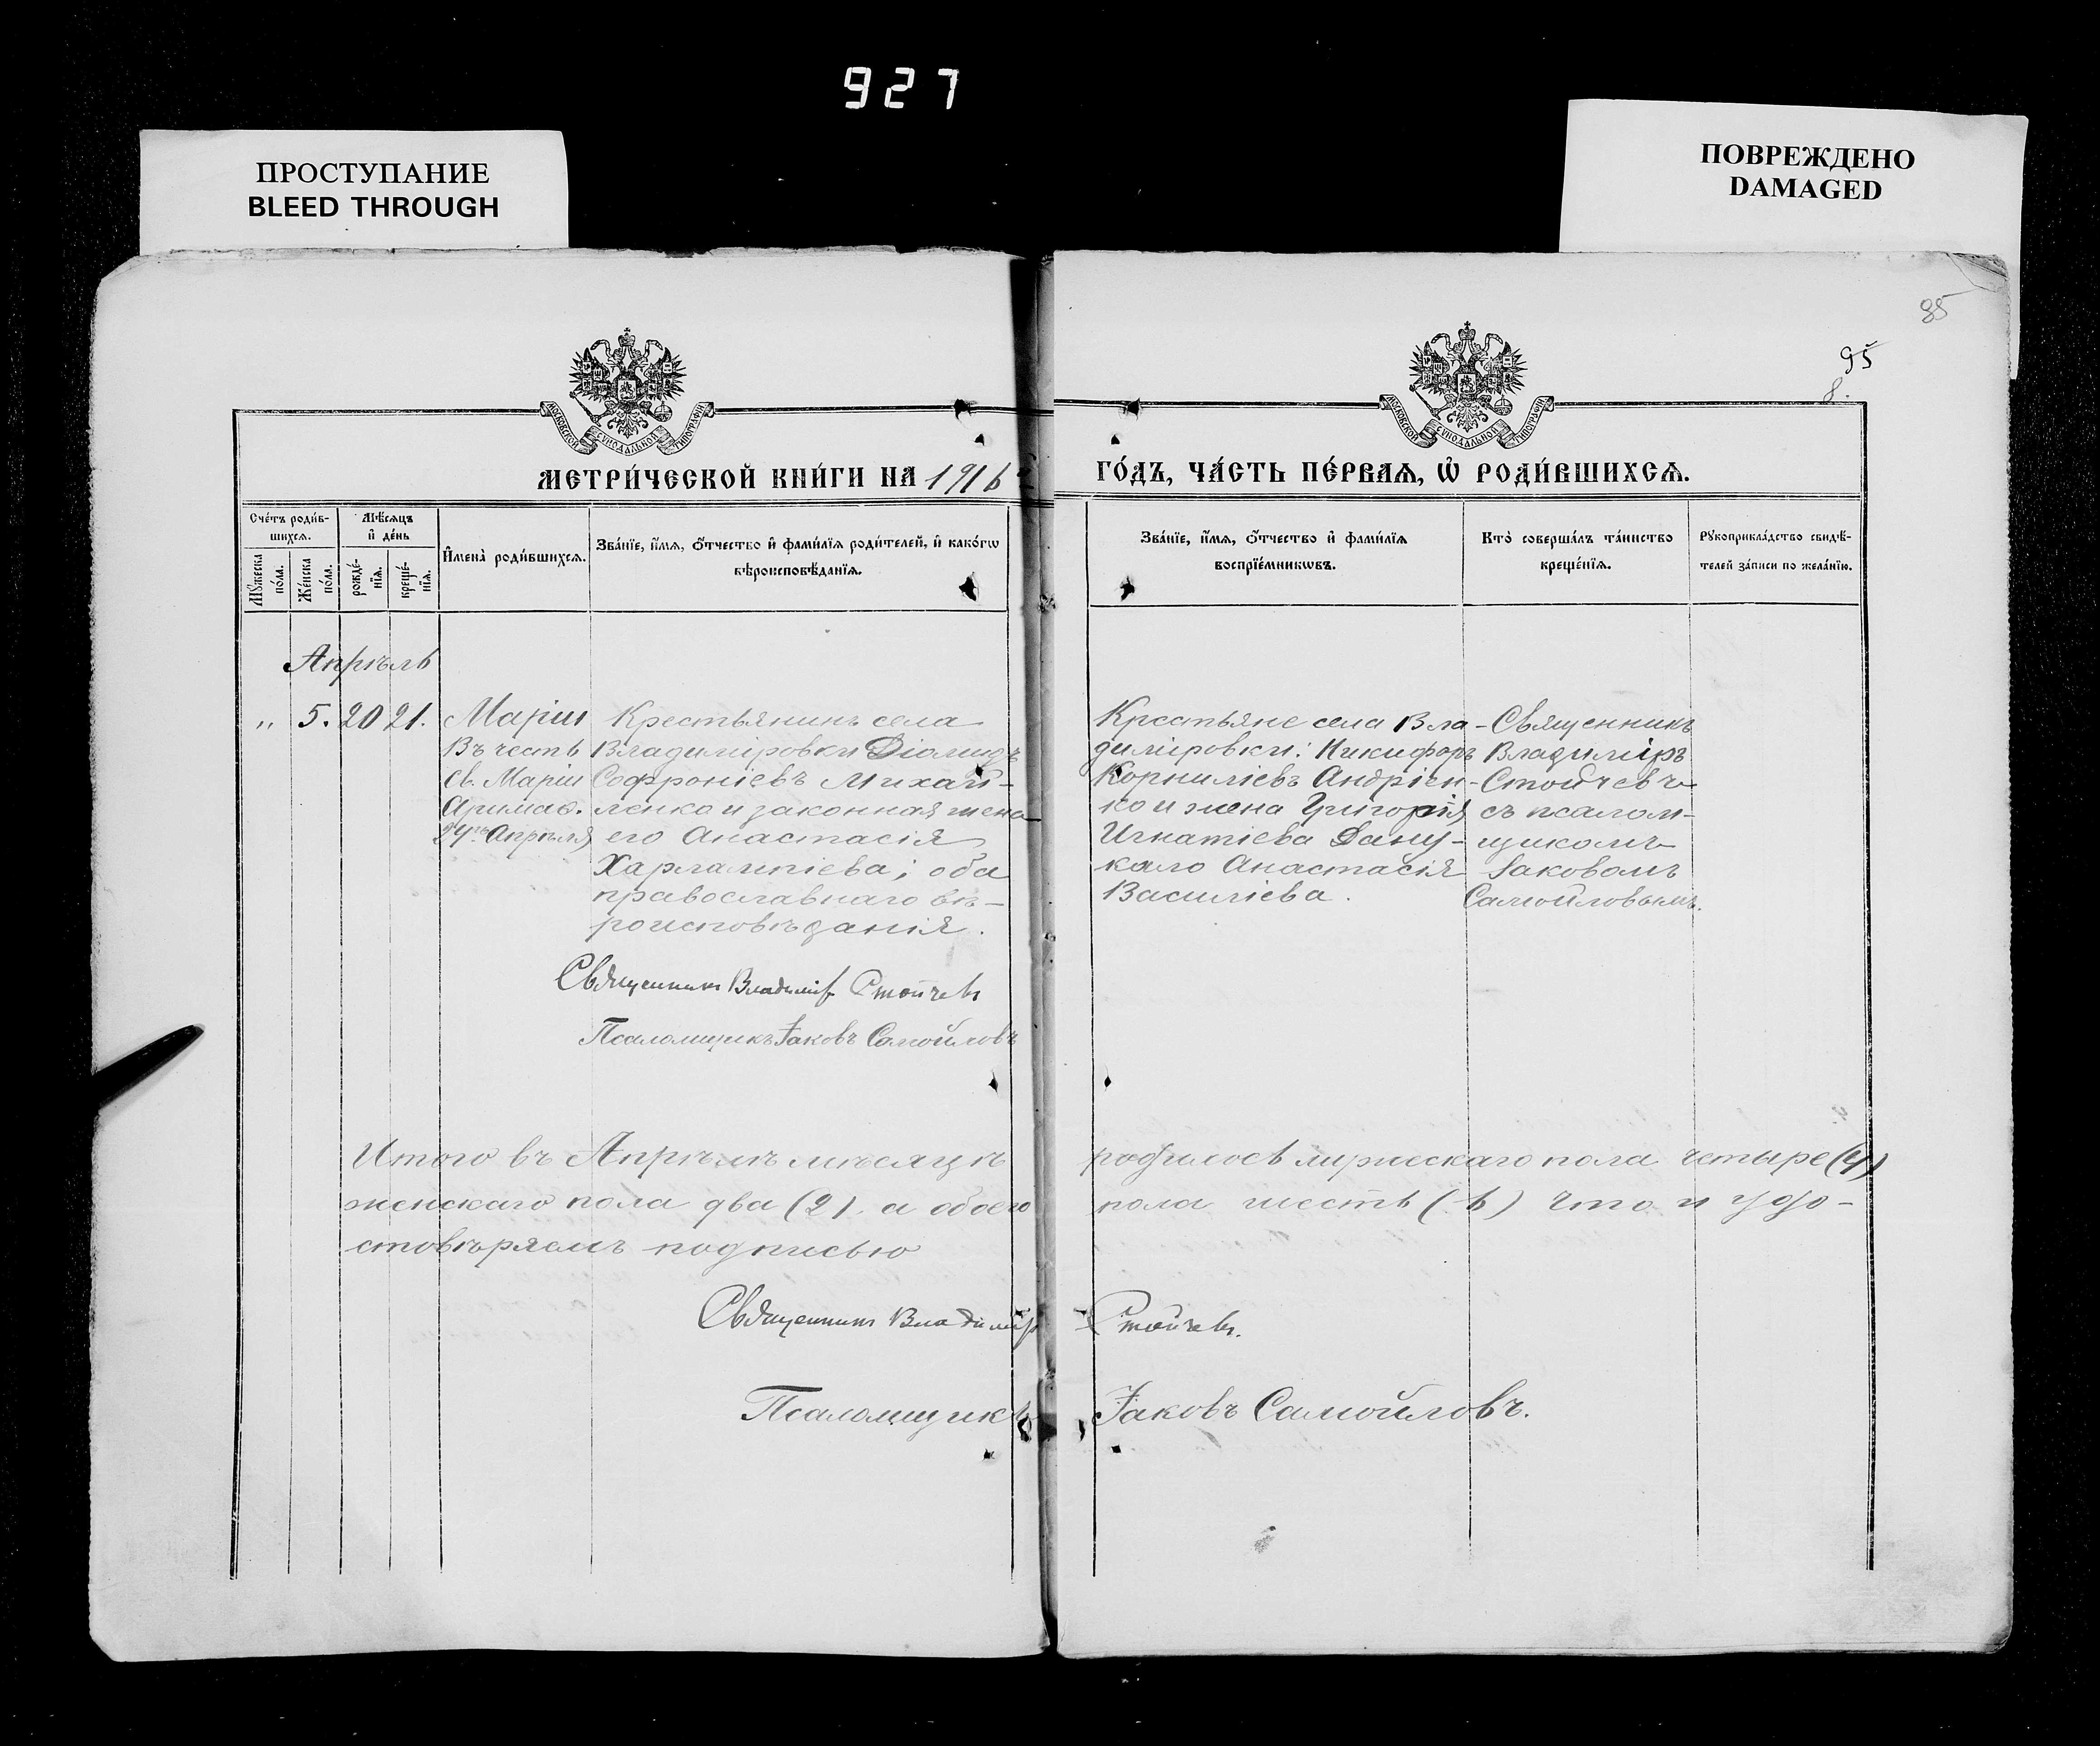 927
ПРОСТУПАНИЕ
BLEED THROUGH
ПОВРЕЖДЕНО
DAMAGED
85
95
8.
МОСКОВСКОЙ СУНОДАЛЬНОЙ ТИПОГРАФІИ
МОСКОВСКОЙ СУНОДАЛЬНОЙ ТИПОГРАФІИ
МЕТРИ́ЧЕСКОЙ КНИ́ГИ НА 1916 ГО́ДЪ, ЧА́СТЬ ПЕ́РВАѦ, Ѡ҆ РОДИ́ВШИХСѦ.
Сче́тъ роди́в-
шихсѧ.
Мꙋ́жеска по́ла.
Же́нска по́ла.
Мѣ́сѧцъ
и҆ де́нь
рожде́-
нїѧ.
креще́-
нїѧ.
И҆мена̀ роди́вшихсѧ.
Зва́нїе, и҆́мѧ, ѻ҆́тчество и҆ фами́лїѧ роди́телей, и҆ како́гѡ
вѣроисповѣ́данїѧ.
Зва́нїе, и҆́мѧ, ѻ҆́тчество и҆ фами́лїѧ
воспрїе́мникѡвъ.
Кто̀ соверша́лъ та́инство
креще́нїѧ.
Рꙋкоприкла́дство свидѣ́-
телей за́писи по жела́нїю.
Апрѣль
„ 5. 20 21.
Марія
Въ честь
св. Маріи
24го Апрѣля
Крестьянинъ села
Владиміровки Діомидъ
Софроніевъ Михай-
ленко и законная жена
его Анастасія
Харлампіева; оба
православнаго вѣ-
роисповѣданія.
Крестьяне села Вла-
диміровки: Никифоръ
Корниліевъ Андріен-
ко и жена Григорія
Игнатіева
Анастасія
Василіева.
Священникъ
Владиміръ
Стойчевъ
съ псалом-
щикомъ
Іаковомъ
Самойловымъ.
Священникъ Владимір Стойчевъ
Псаломщикъ Іаковъ Самойловъ
Итого въ Апрѣлѣ мѣсяцѣ родилось мужескаго пола четыре (4)
женскаго пола два (2) а обоего пола шесть (6) что и удо-
стовѣряемъ подписью
Священникъ Владиміръ Стойчевъ.
Псаломщикъ Іаковъ Самойловъ.